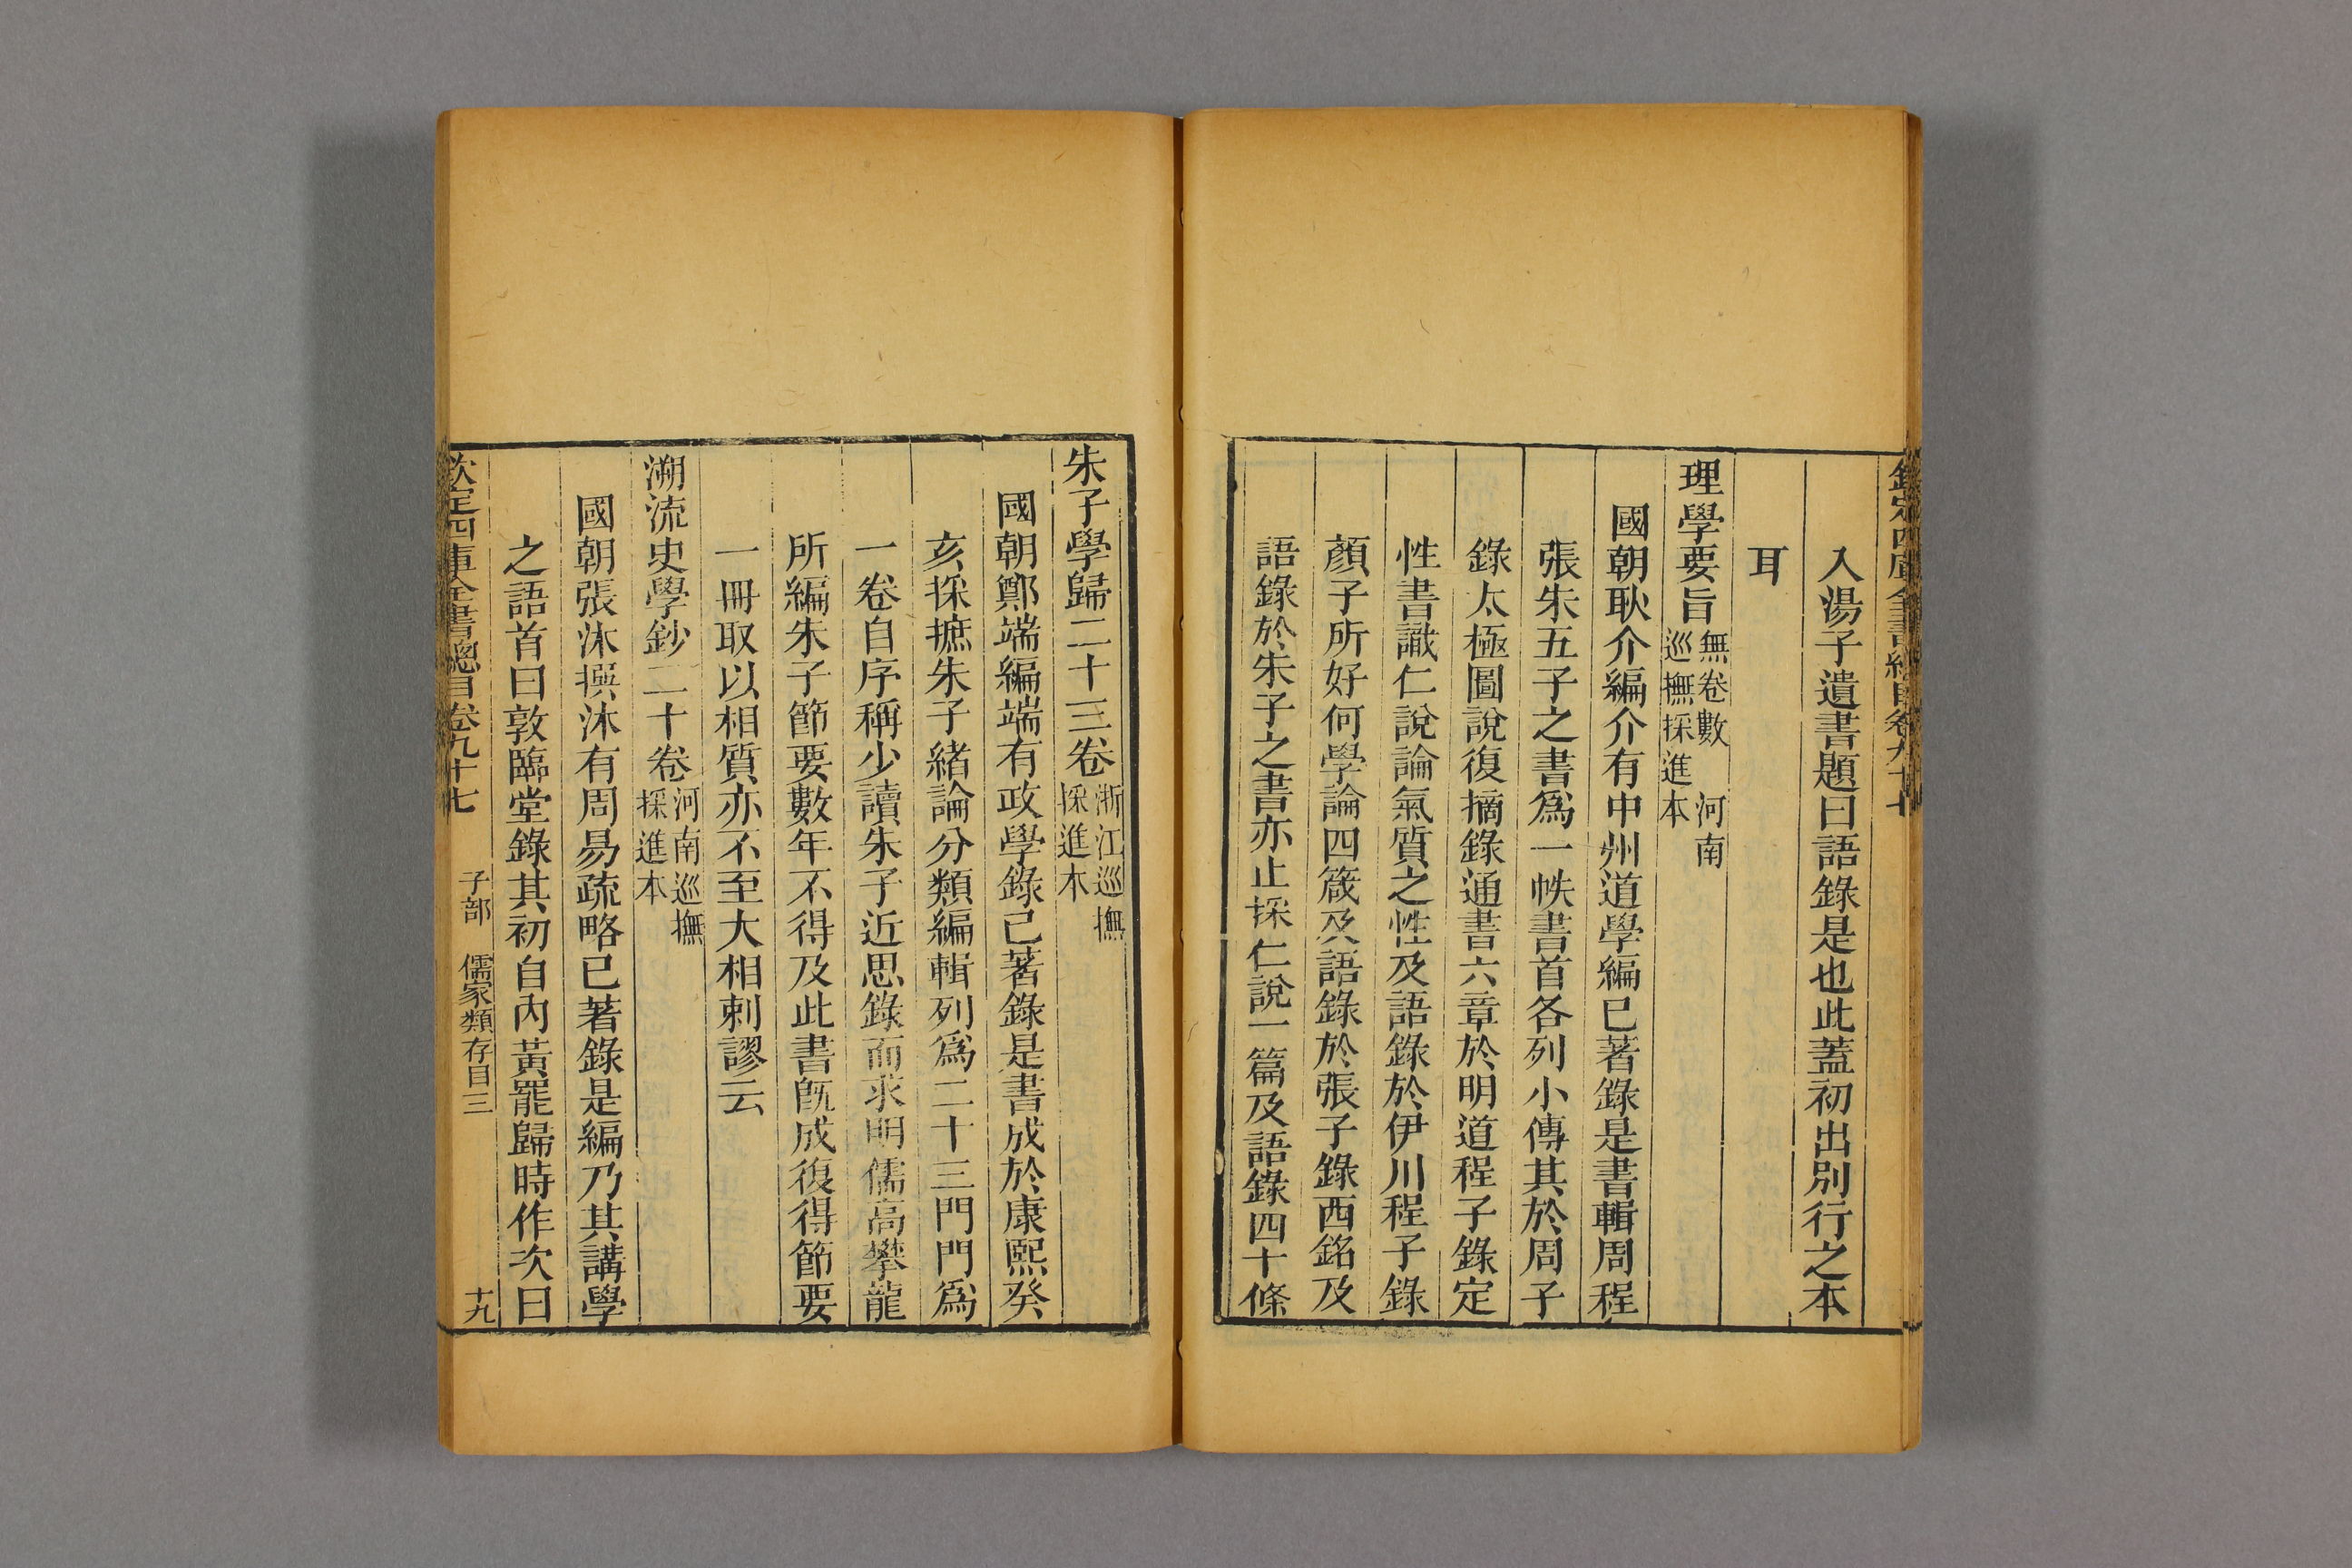 欽定四庫全書總目卷九十七
入湯子遺書題曰語錄是也此蓋初出別行之本
耳
理學要旨無卷數 河南巡撫採進本
國朝耿介編介有中州道學編已著錄是書輯周程
張朱五子之書爲一帙書首各列小傳其於周子
錄太極圖說復摘錄通書六章於明道程子錄定
性書識仁說論氣質之性及語錄於伊川程子錄
顏子所好何學論四箴及語錄於張子錄西銘及
語錄於朱子之書亦止採仁說一篇及語錄四十條
朱子學歸二十三卷浙江巡撫採進本
國朝鄭端編端有政學錄已著錄是書成於康熙癸
亥採摭朱子緒論分類編輯列爲二十三門門爲
一卷自序稱少讀朱子近思錄而求明儒高攀龍
所編朱子節要數年不得及此書旣成復得節要
一冊取以相質亦不至大相刺謬云
溯流史學鈔二十卷河南巡撫採進本
國朝張沐撰沐有周易疏略已著錄是編乃其講學
之語首曰敦臨堂錄其初自內黃罷歸時作次曰
欽定四庫全書總目卷九十七 子部 儒家類存目三 十九